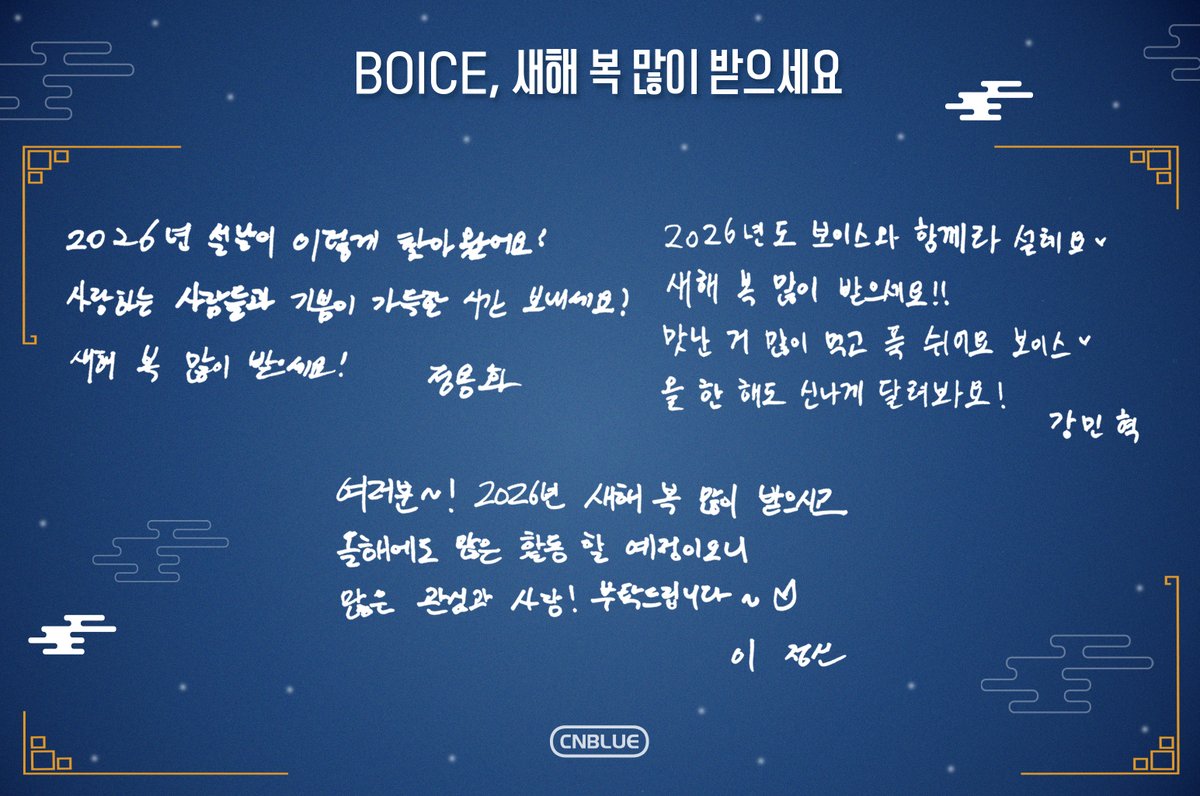 BOICE, 새해 복 많이 받으세요
2026년 설날이 이렇게 찾아왔어요!
사랑하는 사람들과 기쁨이 가득한 시간 보내세요!
새해 복 많이 받으세요!
정용화
2026년도 보이스와 함께라 설레요♥
새해 복 많이 받으세요!!
맛난 거 많이 먹고 푹 쉬어요 보이스♥
올 한 해도 신나게 달려봐요!
강민혁
여러분~! 2026년 새해 복 많이 받으시고
올해에도 많은 활동 할 예정이오니
많은 관심과 사랑! 부탁드립니다~♡
이정신
CNBLUE